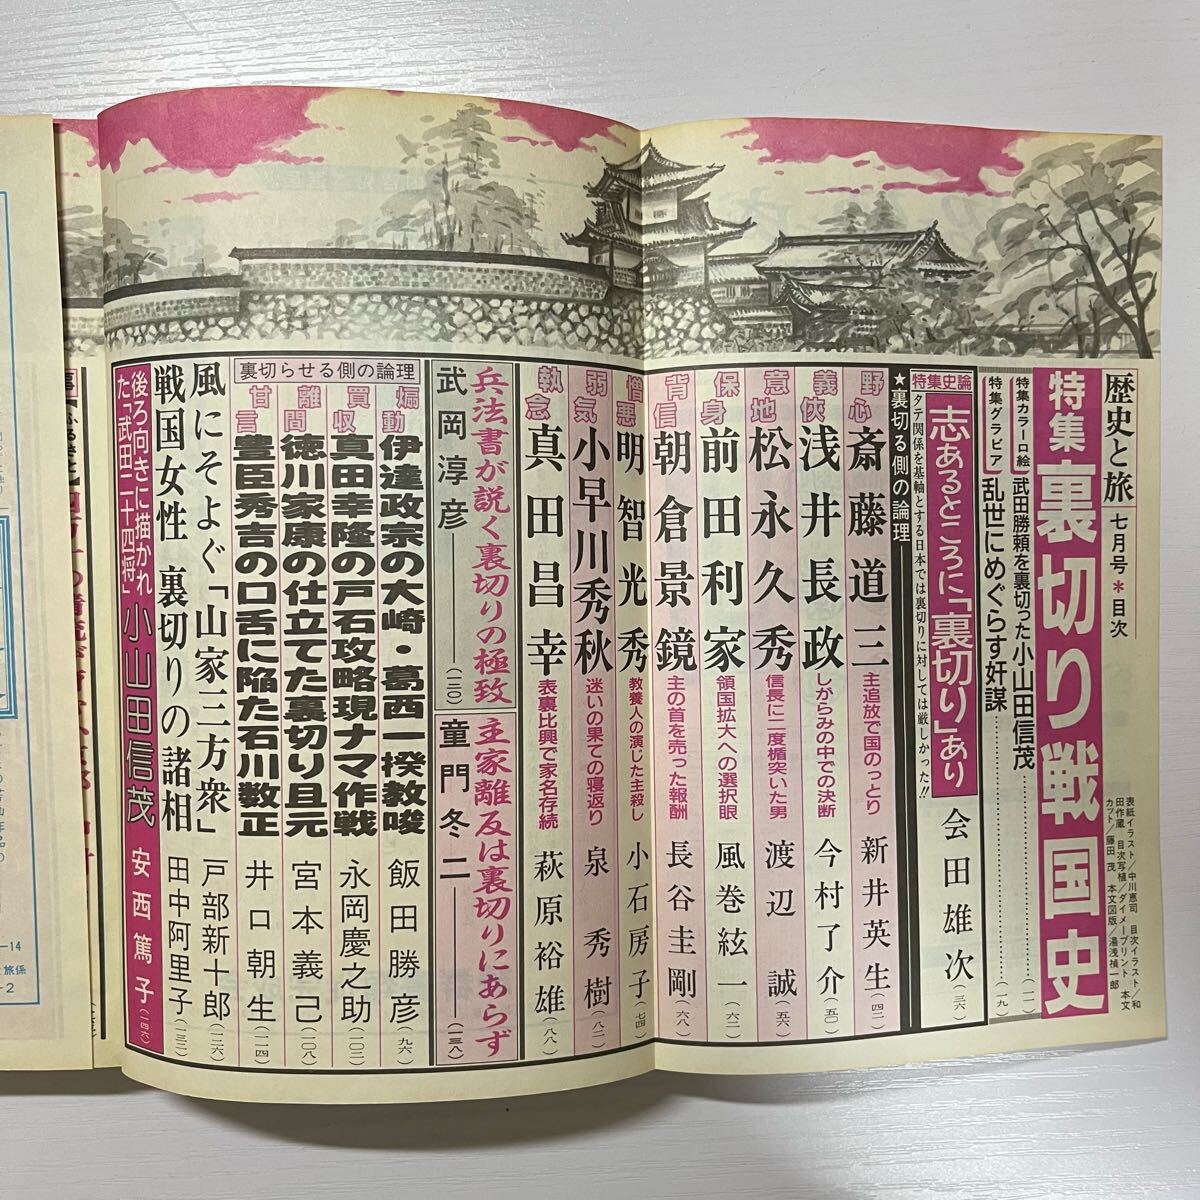 歴史と旅 七月号＊目次
特集 裏切り戦国史
表紙イラスト／中川恵司 目次イラスト／和
田作蔵 目次写植／ダイメープリント 本文
カット／藤田 茂 本文図版／湯浅禎一郎
特集カラー口絵 武田勝頼を裏切った小山田信茂……(一一)
特集グラビア 乱世にめぐらす奸謀……(一九)
特集史論 志あるところに「裏切り」あり 会田雄次(三六)
タテ関係を基軸とする日本では裏切りに対しては厳しかった!!
★裏切る側の論理
野心 斎藤道三 主追放で国のっとり 新井英生(四二)
義侠 浅井長政 しがらみの中での決断 今村了介(五〇)
意地 松永久秀 信長に二度楯突いた男 渡辺 誠(五六)
保身 前田利家 領国拡大への選択眼 風巻絃一(六二)
背信 朝倉景鏡 主の首を売った報酬 長谷圭剛(六八)
憎悪 明智光秀 教養人の演じた主殺し 小石房子(七四)
弱気 小早川秀秋 迷いの果ての寝返り 泉 秀樹(八二)
執念 真田昌幸 表裏比興で家名存続 萩原裕雄(八八)
兵法書が説く裏切りの極致
武岡淳彦――(一三〇)
主家離反は裏切りにあらず
童門冬二――(一三八)
裏切らせる側の論理
煽動 伊達政宗の大崎・葛西一揆教唆 飯田勝彦(九六)
買収 真田幸隆の戸石攻略現ナマ作戦 永岡慶之助(一〇二)
離間 徳川家康の仕立てた裏切り且元 宮本義己(一〇八)
甘言 豊臣秀吉の口舌に陥た石川数正 井口朝生(一一四)
風にそよぐ「山家三方衆」 戸部新十郎(一二六)
戦国女性 裏切りの諸相 田中阿里子(一三二)
後ろ向きに描かれ
た「武田二十四将」 小山田信茂 安西篤子(一四六)